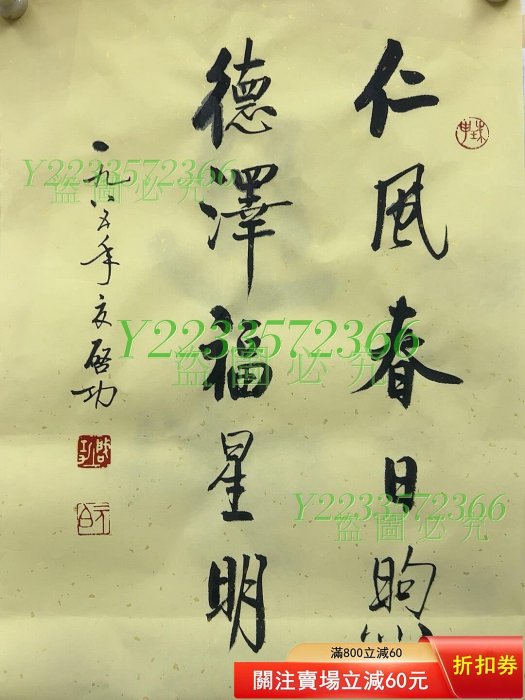 仁風春日煦
德澤福星明
一九八五年夏啟功
Y2233572366
盜圖必究
Y2233572366
盜圖必究
Y2233572366
盜圖必究
滿800立減60
關注賣場立減60元
折扣券